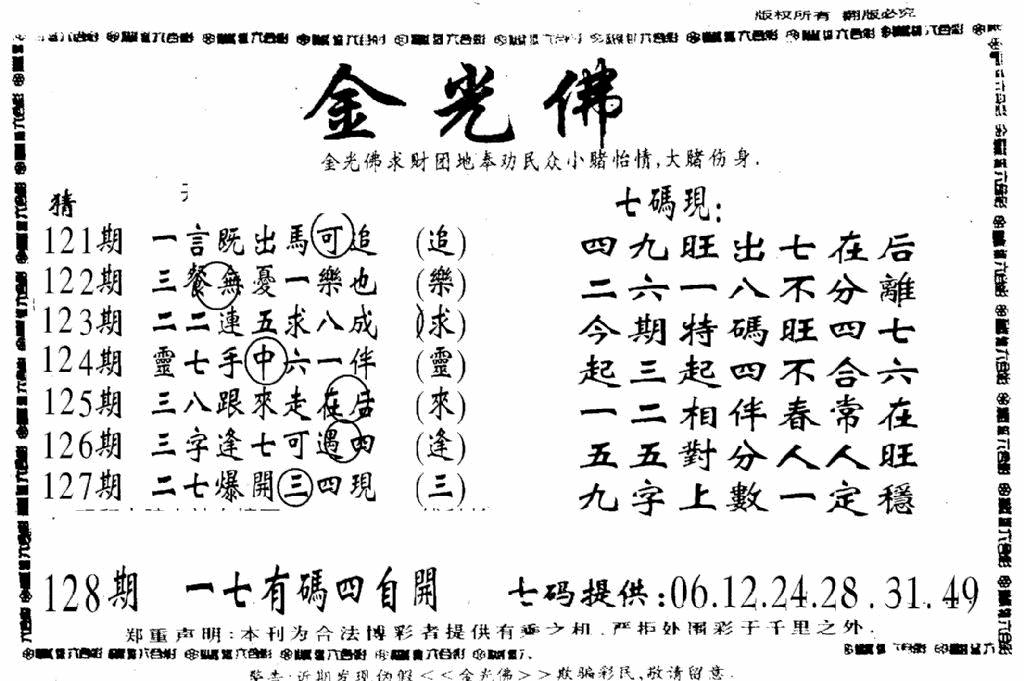 版权所有 翻版必究
金光佛
金光佛求财团地奉劝民众小赌怡情,大赌伤身.
猜
七碼現:
121期 一言既出馬可追 (追)
122期 三餐無憂一樂也 (樂)
123期 二二連五求八成 (求)
124期 靈七手中六一伴 (靈)
125期 三八跟來走在后 (來)
126期 三字逢七可遇四 (逢)
127期 二七爆開三四現 (三)
四九旺出七在后
二六一八不分離
今期特碼旺四七
起三起四不合六
一二相伴春常在
五五對分人人旺
九字上數一定穩
128期 一七有碼四自開 七码提供:06.12.24.28.31.49
郑重声明:本刊为合法博彩者提供有乘之机.严拒处围彩于千里之外.
警告:近期发现伪假<<金光佛>>欺骗彩民,敬请留意.